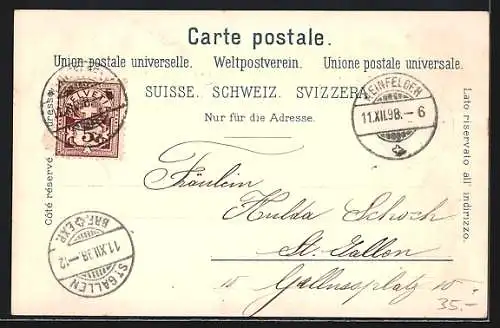 Carte postale.
Union postale universelle. Weltpostverein. Unione postale universale.
SUISSE. SCHWEIZ. SVIZZERA.
Nur für die Adresse.
Côté réservé
adresse.
Lato riservato all' indirizzo.
HELVETIA
5
RHEINFELDEN
11.XII.98.–6
Fräulein
Hulda Schoch
St. Gallen
15 Gallusplatz 15
35.-
BRF. EXP.
11.XII.98.–12
ST. GALLEN